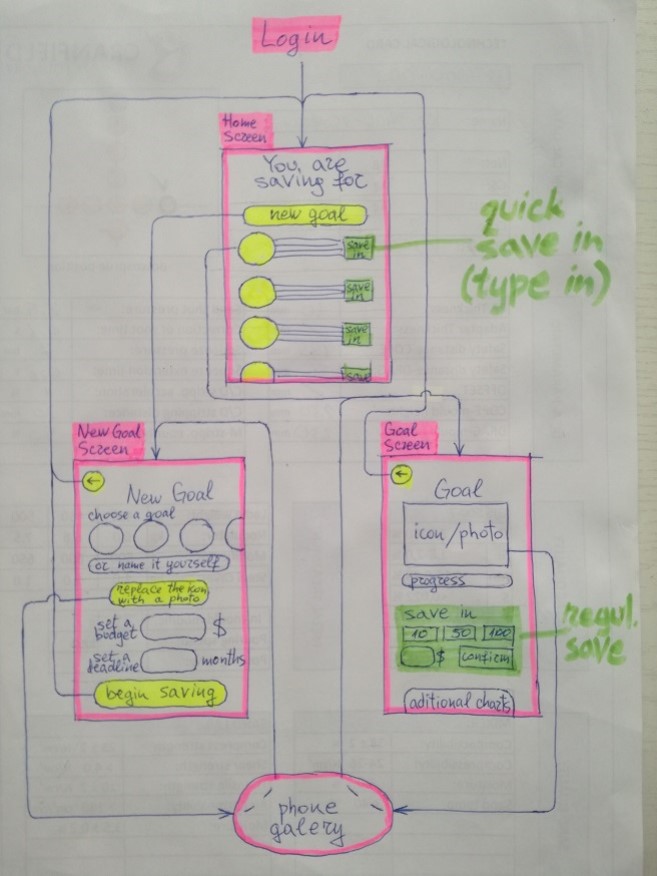 Login
Home
Screen
You are
saving for
new goal
save
in
save
in
save
in
save
quick
save in
(type in)
New Goal
Screen
←
New Goal
choose a goal
or name it yourself
replace the icon
with a photo
set a
budget
$
set a
deadline
months
begin saving
Goal
Screen
←
Goal
icon/photo
progress
save in
10 50 100
$ confirm
aditional charts
regul.
save
phone
galery